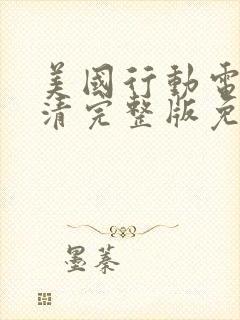 美國行動電
清完整版免
墨蓁